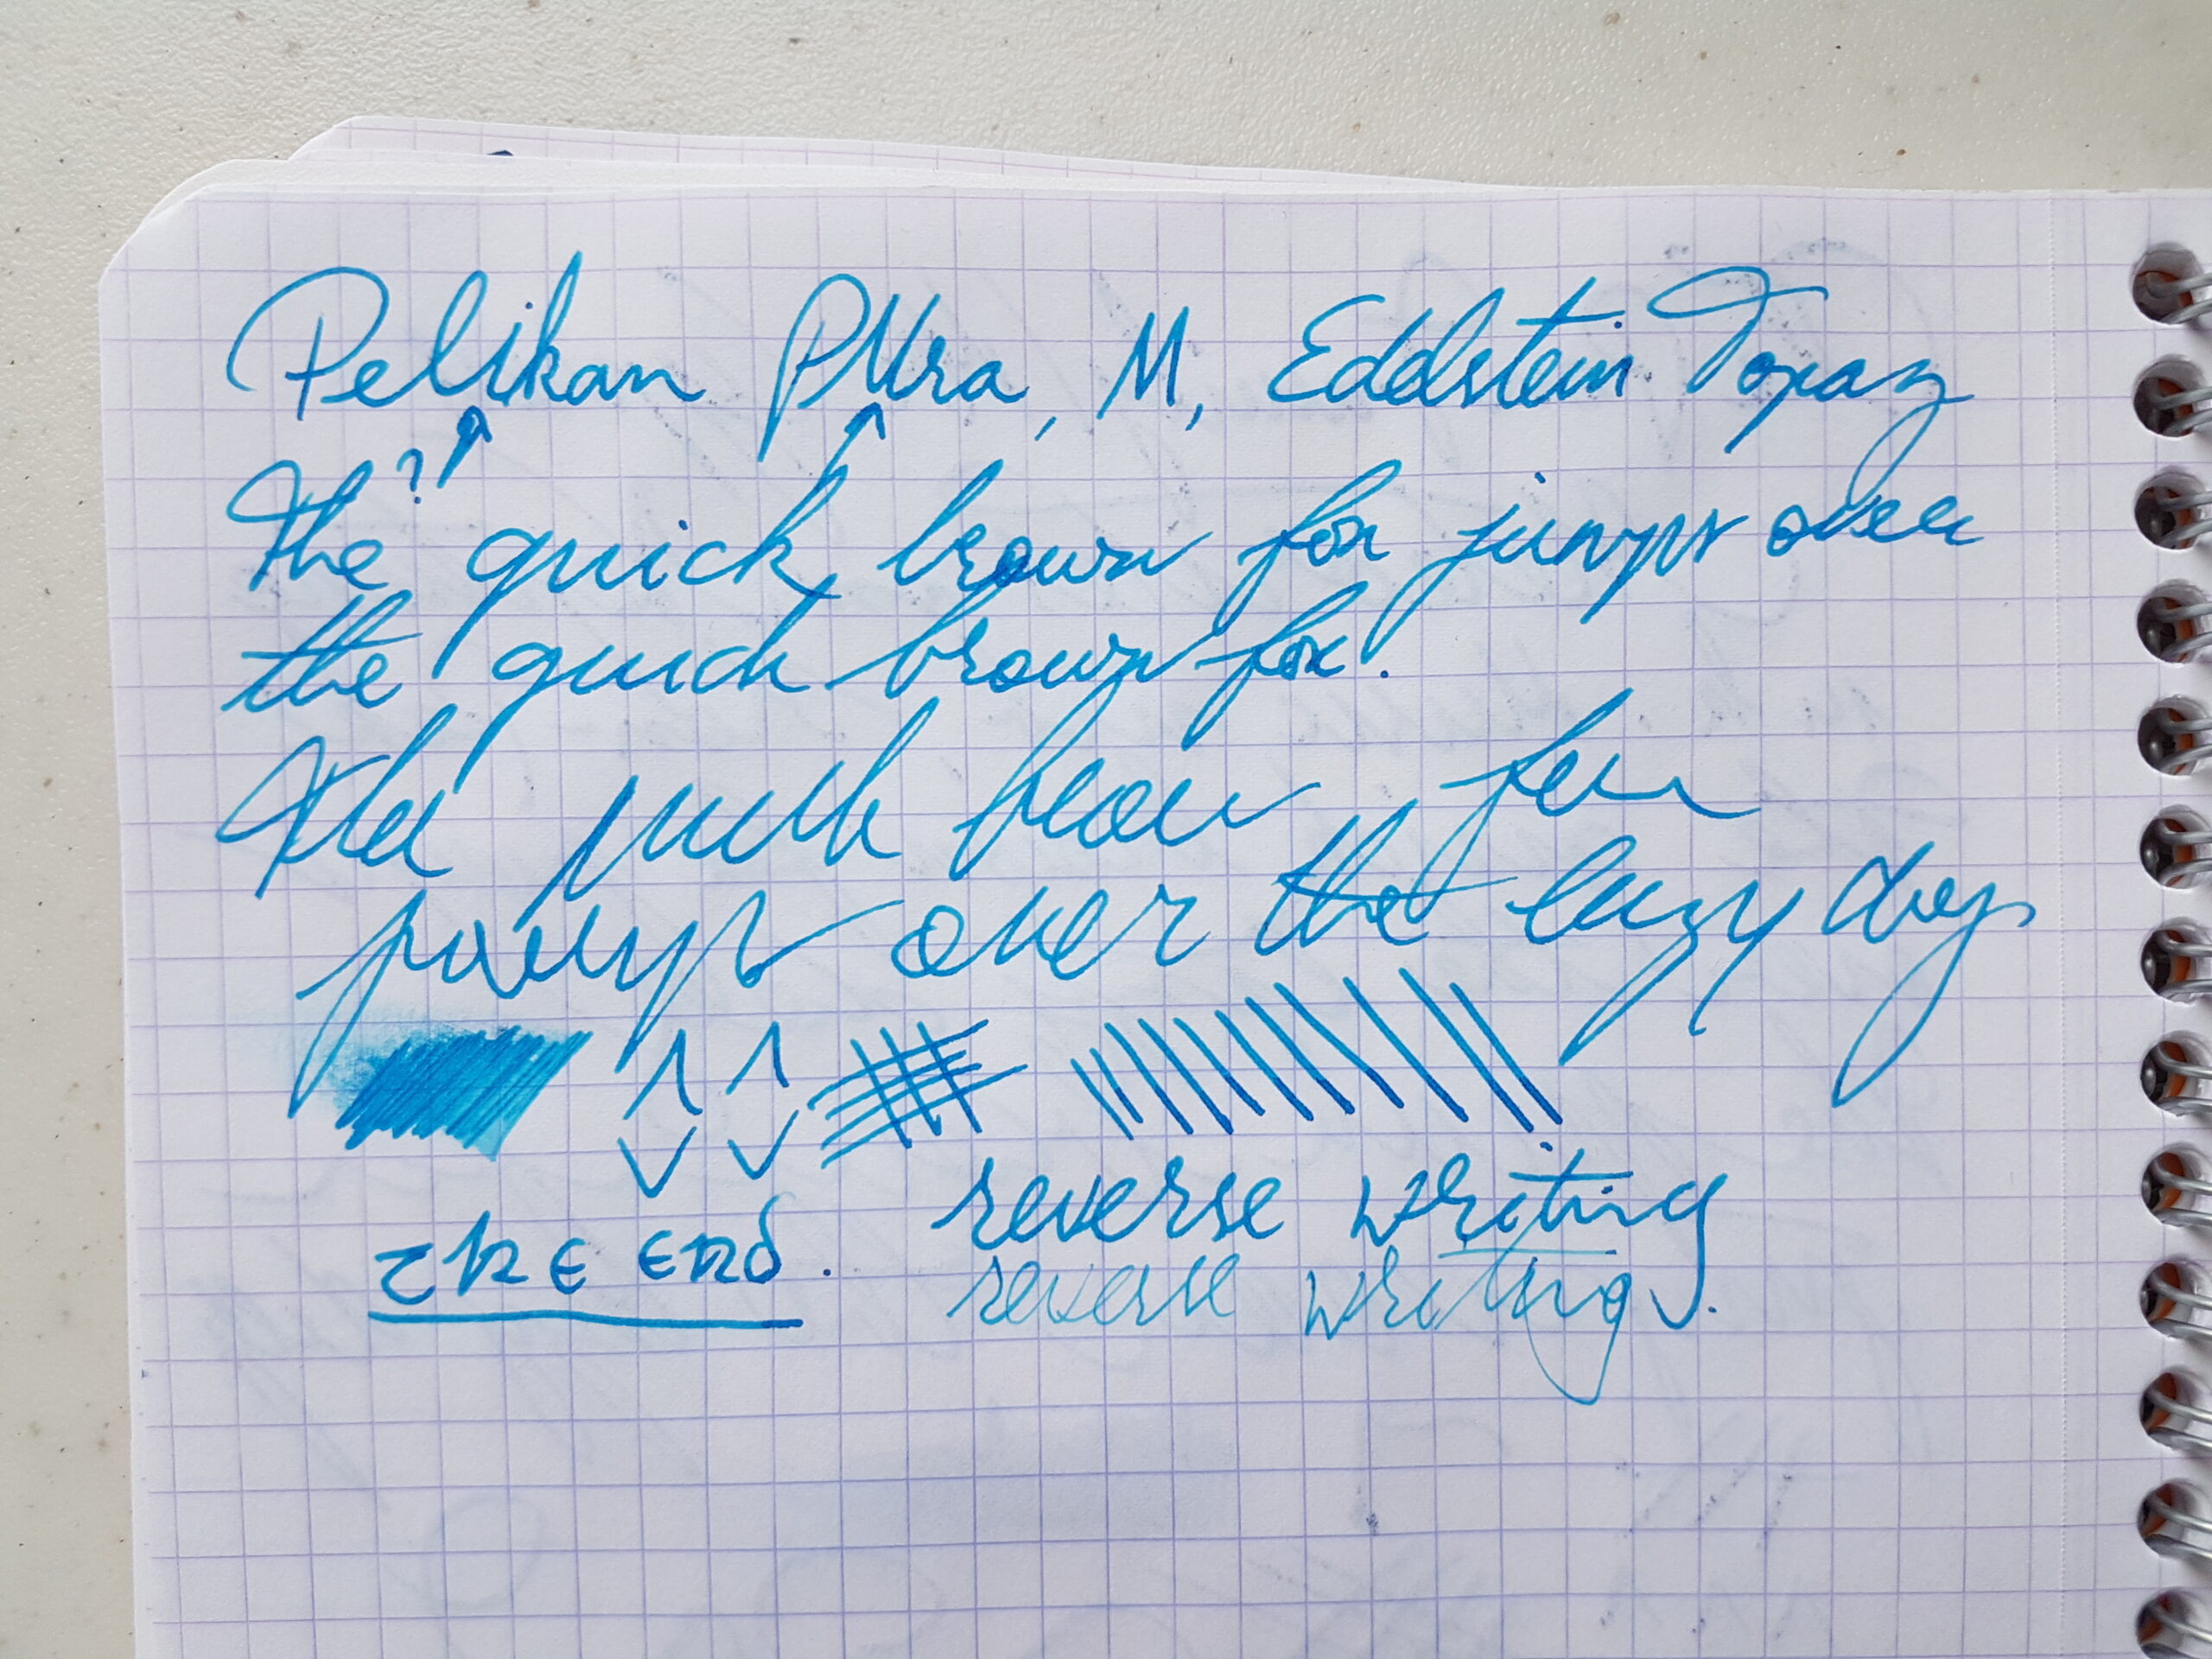 Pelikan PUra, M, Edelstein Topaz
?
The quick brown fox jumps over
the quick brown fox.
The quick brown fox
jumps over the lazy dog
reverse writing
the end.
reverse writing.